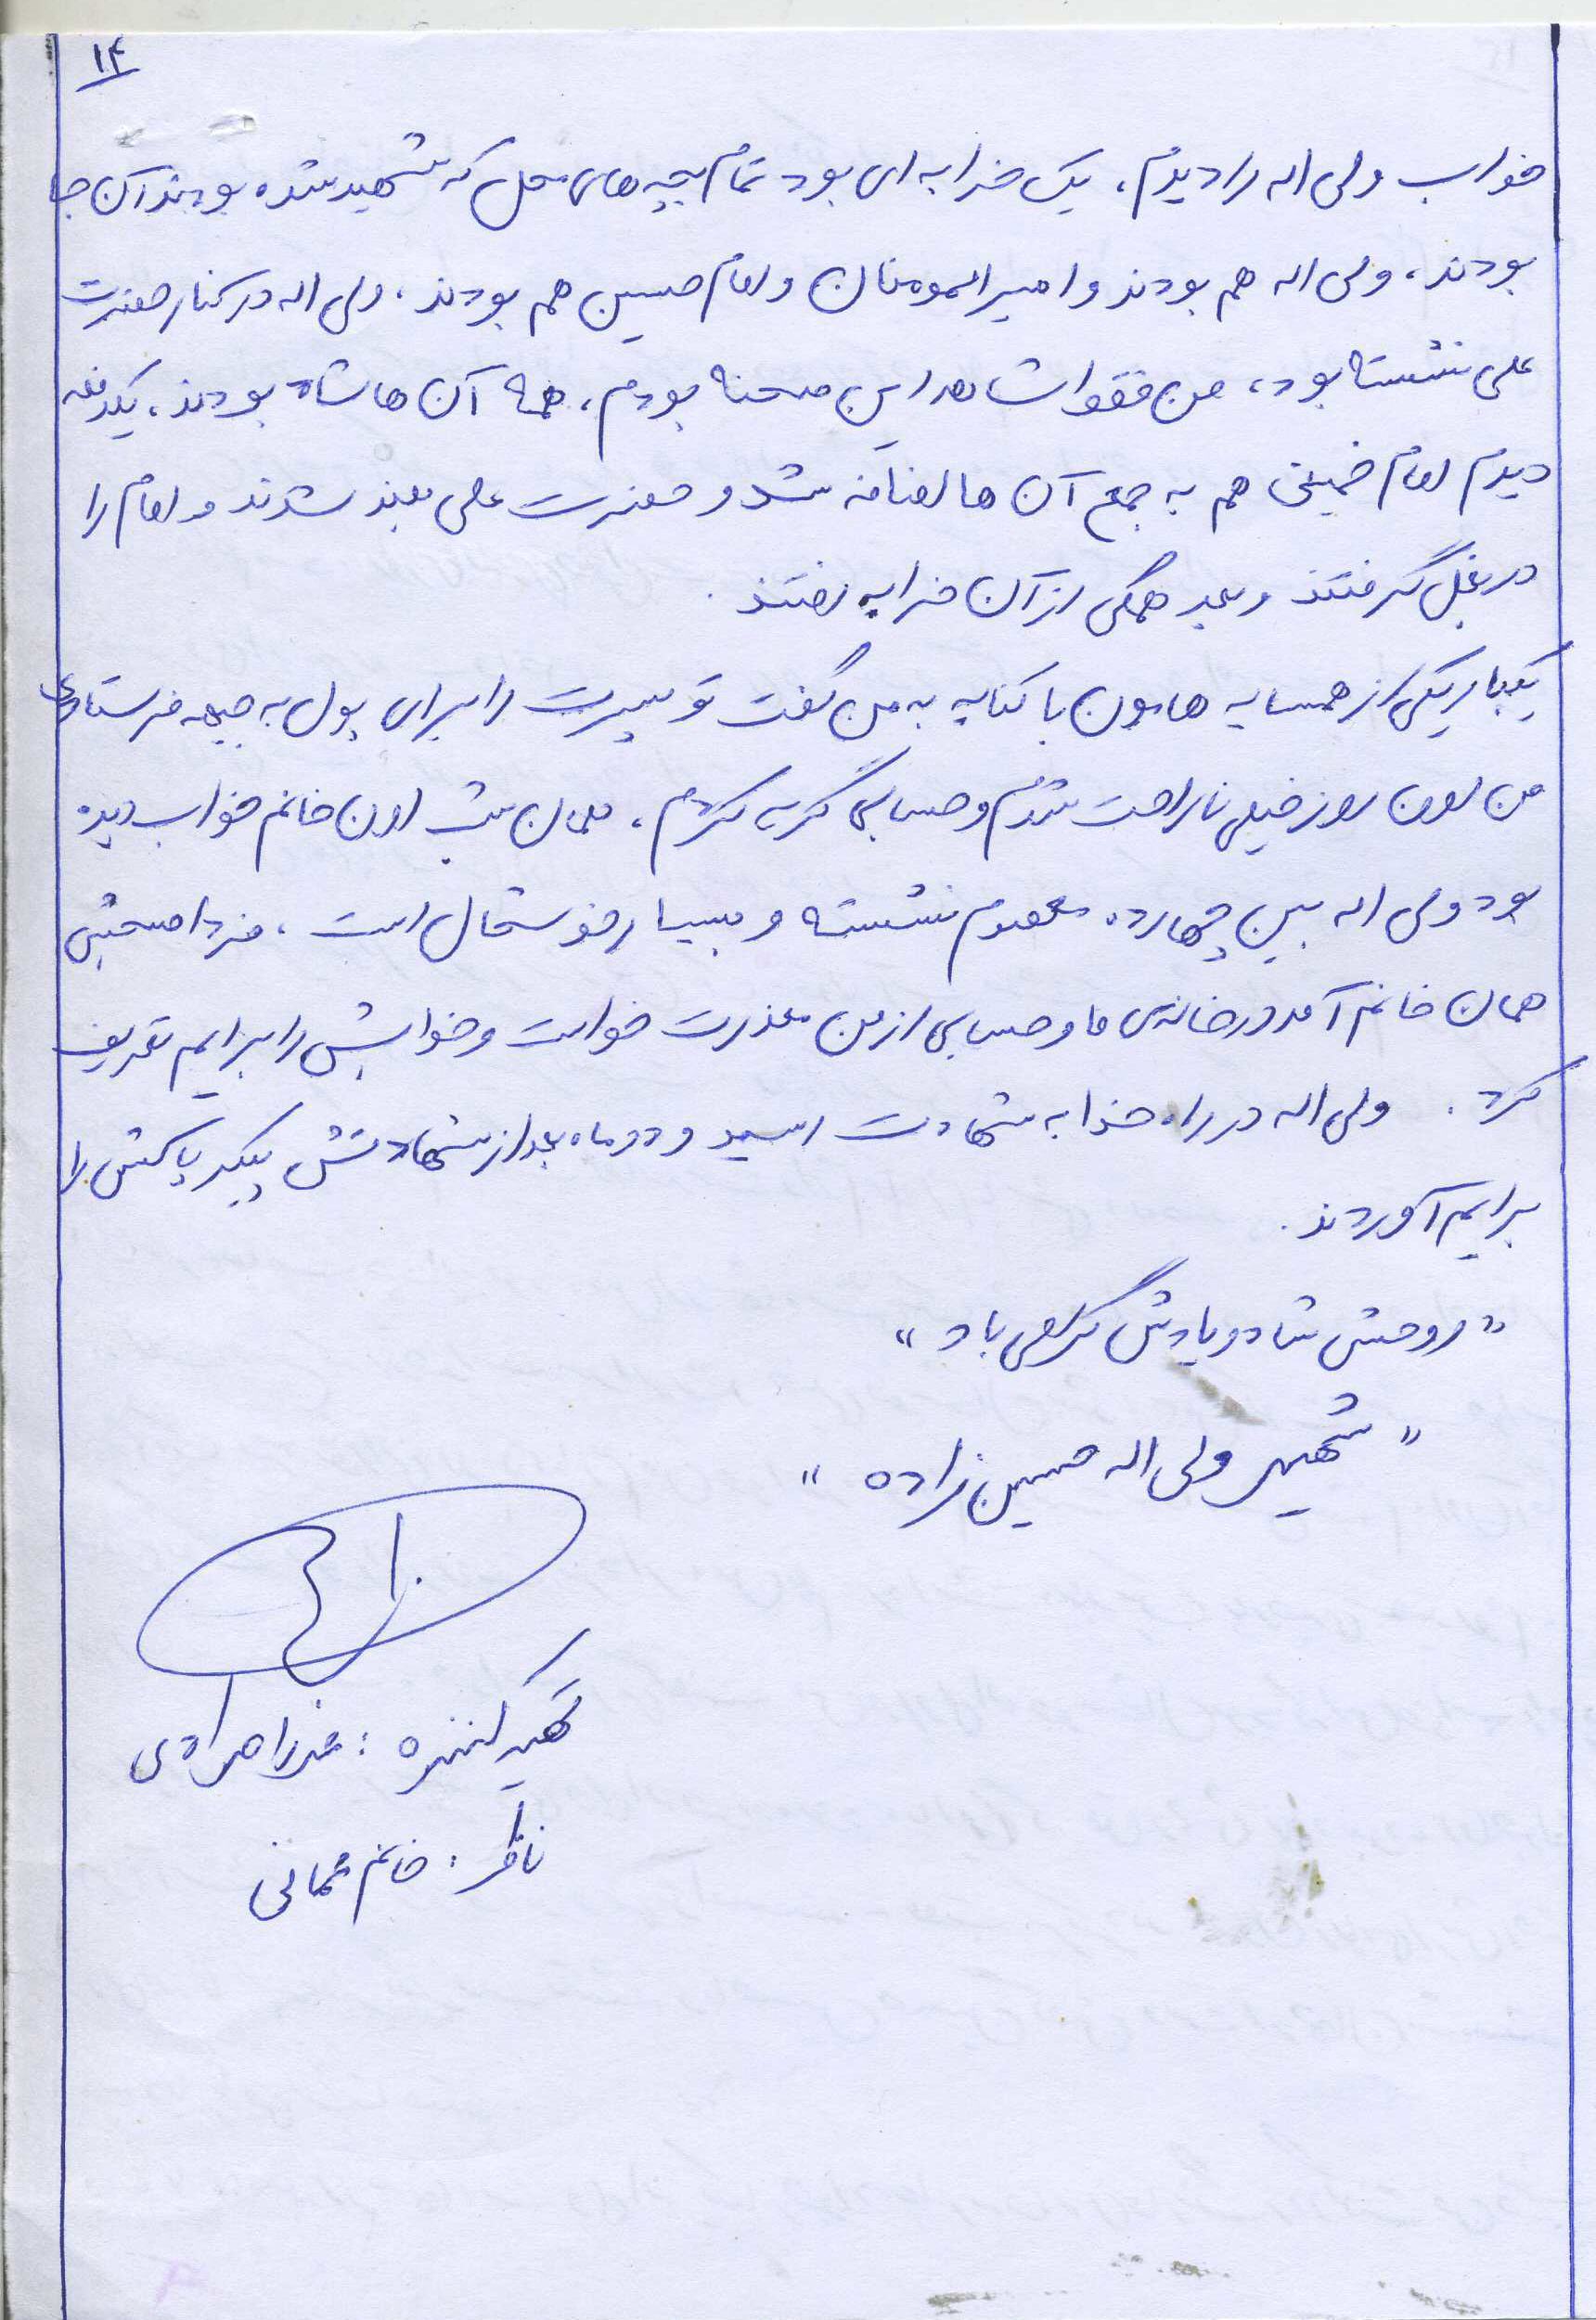 ۱۴
خواب ولی اله را دیدم، یک خرابه ای بود تمام بچه های محل که شهید شده بودند آن جا
بودند، ولی اله هم بودند و امیرالمومنان و امام حسین هم بودند، ولی اله در کنار حضرت
علی نشسته بود، من فقط شاهد این صحنه بودم، همه آن ها شاد بودند، یکدفعه
دیدم امام خمینی هم به جمع آن ها اضافه شد و حضرت علی بلند شدند و امام را
در بغل گرفتند و بعد همگی از آن خرابه رفتند.
یکبار یکی از همسایه هامون با کنایه به من گفت تو پسرت را برای پول به جبهه فرستادی
من اون روز خیلی ناراحت شدم و حسابی گریه کردم، همان شب اون خانم خواب دیده
بود ولی اله بین چهارده معصوم نشسته و بسیار خوشحال است، فردا صبحش
همان خانم آمد در خانه‌ی ما و حسابی از من معذرت خواست و خوابش را برایم تعریف
کرد. ولی اله در راه خدا به شهادت رسید و دو ماه بعد از شهادتش پیکر پاکش را
برایم آوردند.
"روحش شاد و یادش گرامی باد"
"شهید ولی اله حسین زاده"
تهیه کننده: مرادی
ناظر: خانم